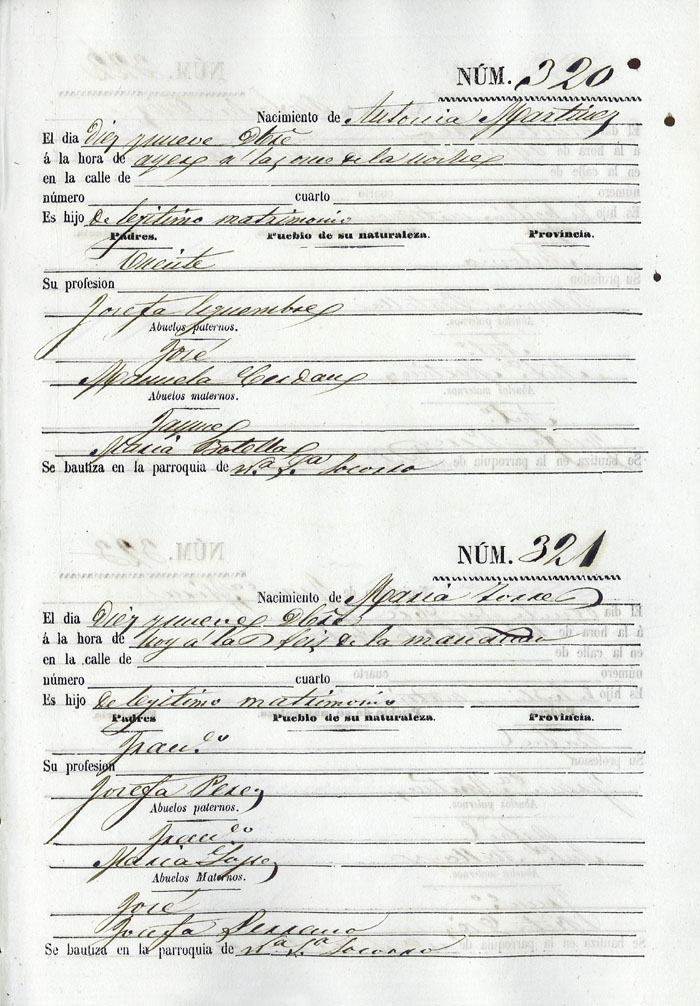 NÚM. 320
Nacimiento de Antonia Martinez
El dia Diez y nueve Dbre
á la hora de ayer á las once de la noche
en la calle de
número cuarto
Es hijo de legitimo matrimonio
Padres. Pueblo de su naturaleza. Provincia.
Vicente
Su profesion
Josefa
Abuelos paternos.
José
Manuela Cerdan
Abuelos maternos.
Jayme
Maria Botella
Se bautiza en la parroquia de Nª Sª Socorro
NÚM. 321
Nacimiento de Maria Torres
El dia Diez y nueve Dbre
á la hora de hoy á las seis de la mañana
en la calle de
número cuarto
Es hijo de legitimo matrimonio
Padres Pueblo de su naturaleza. Provincia.
Franco
Su profesion
Josefa Perez
Abuelos paternos.
Franco
Maria Lopez
Abuelos Maternos.
José
Josefa Serrano
Se bautiza en la parroquia de Nª Sª Socorro